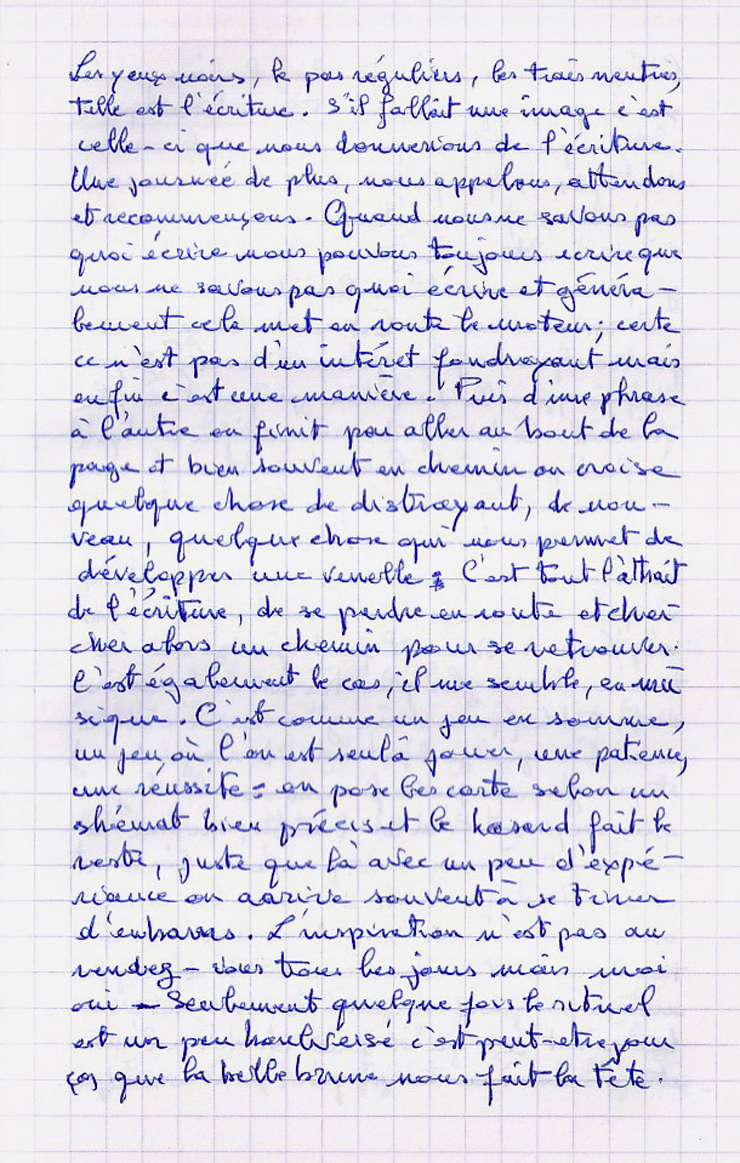 Les yeux noirs, le pas réguliers, les trais neutres,
telle est l'écriture. S'il fallait une image c'est
celle-ci que nous donnerions de l'écriture.
Une journée de plus, nous appelons, attendons
et recommençons. Quand nous ne savons pas
quoi écrire nous pouvons toujours écrire que
nous ne savons pas quoi écrire et généra-
lement cela met en route le moteur ; certe
ce n'est pas d'un intérêt foudroyant mais
enfin c'est une manière. Puis d'une phrase
à l'autre on finit par aller au bout de la
page et bien souvent en chemin on croise
quelque chose de distrayant, de nou-
veau, quelque chose qui nous permet de
développer une venelle : C'est tout l'attrait
de l'écriture, de se perdre en route et cher
cher alors un chemin pour se retrouver.
C'est également le cas, il me semble, en mu
sique. C'est comme un jeu en somme,
un jeu où l'on est seul à jouer, une patience,
une réussite : on pose les carte selon un
shémat bien précis et le hasard fait le
reste, juste que là avec un peu d'expé-
riance on aarive souvent à se tirer
d'embarras. L'inspiration n'est pas au
rendez-vous tous les jours mais moi
oui - Seulement quelque fois le rituel
est un peu bouleversé c'est peut-etre pour
ça que la belle brune nous fait la tête.